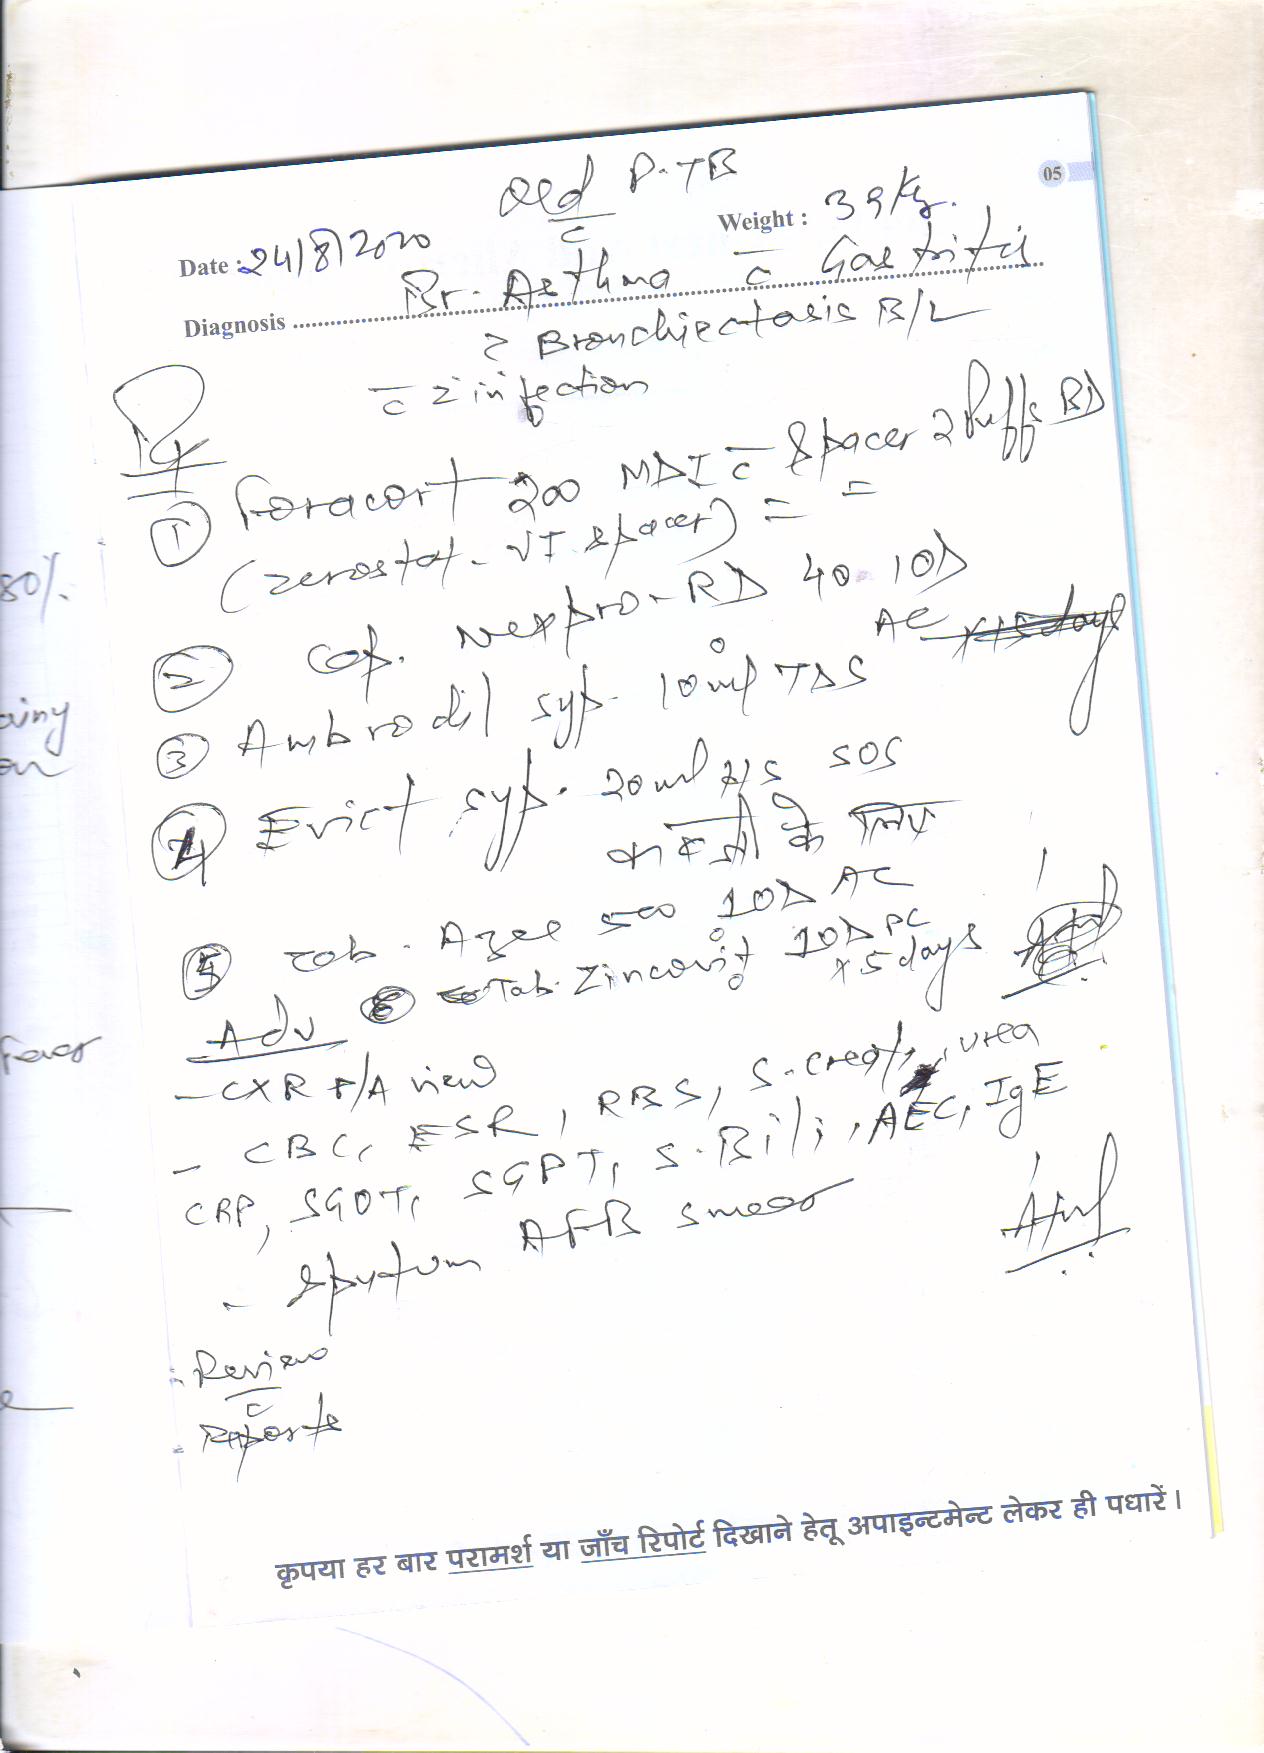 05
Old P.TB
c̄
Date : 24/8/2020 Weight : 39 kg.
Diagnosis Br. Asthma c̄ Gastritis
? Bronchiectasis B/L
c̄ 2° infection
Rx
① Foracort 200 MDI c̄ Spacer 2 Puffs BD
(Zerostat-VT spacer) = =
② Cap. Nexpro-RD 40 1OD
AC
③ Ambrodil syp. 10 ml TDS
④ Evict syp. 20 ml H/S SOS
कब्जी के लिए
⑤ Tab. Azee 500 1OD AC
x 5 days
⑥ Tab. Zincovit 1OD PC
Adv
- CXR P/A view
- CBC, ESR, RBS, S. creat, urea
CRP, SGOT, SGPT, S. Bili, AEC, IgE
- Sputum AFB smear
Review
c̄
Reports
कृपया हर बार परामर्श या जाँच रिपोर्ट दिखाने हेतू अपाइन्टमेन्ट लेकर ही पधारें।
80%
fever